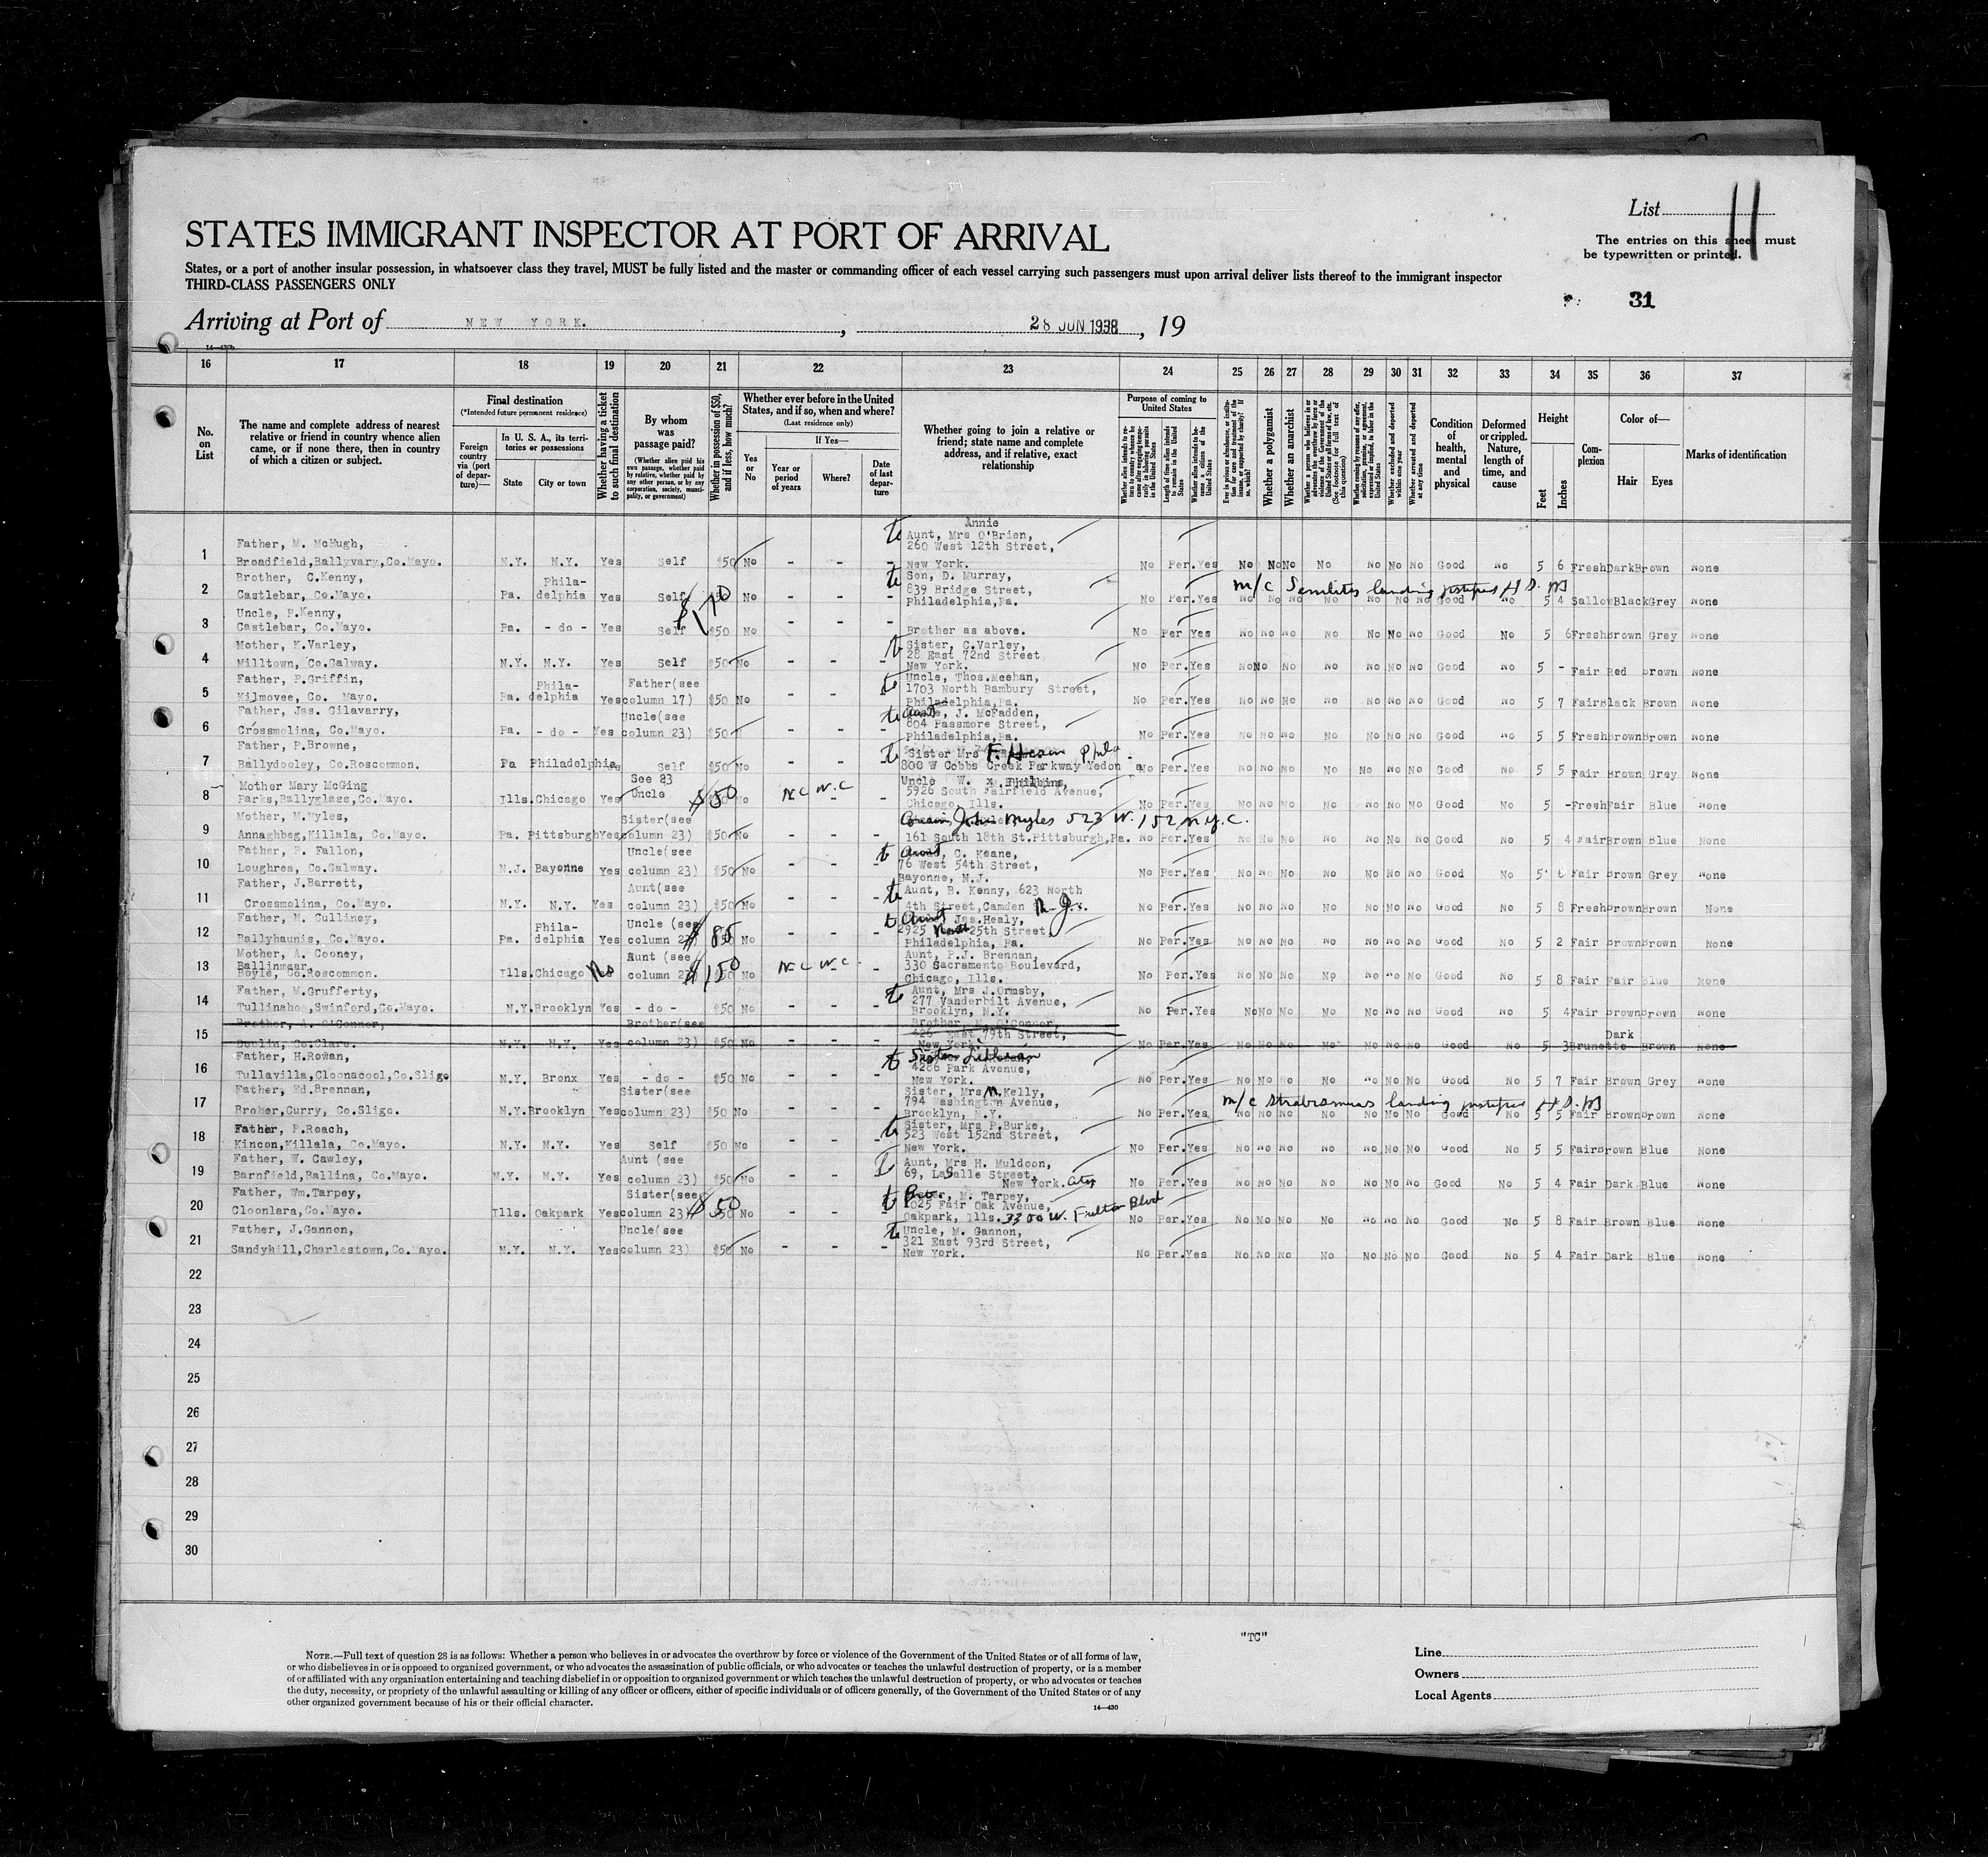 List 11
STATES IMMIGRANT INSPECTOR AT PORT OF ARRIVAL
The entries on this sheet must
be typewritten or printed.
States, or a port of another insular possession, in whatsoever class they travel, MUST be fully listed and the master or commanding officer of each vessel carrying such passengers must upon arrival deliver lists thereof to the immigrant inspector
THIRD-CLASS PASSENGERS ONLY
31
Arriving at Port of NEW YORK. , 28 JUN 1938 , 19
16 17 18 19 20 21 22 23 24 25 26 27 28 29 30 31 32 33 34 35 36 37
No. on List
The name and complete address of nearest relative or friend in country whence alien came, or if none there, then in country of which a citizen or subject.
Final destination
(*Intended future permanent residence)
Foreign country via (port of departure)—
In U. S. A., its territories or possessions
State
City or town
Whether having a ticket to such final destination
By whom was passage paid?
(Whether alien paid his own passage, whether paid by relative, whether paid by any other person, or by any corporation, society, municipality, or government)
Whether in possession of $50, and if less, how much?
Whether ever before in the United States, and if so, when and where?
(Last residence only)
Yes or No
If Yes—
Year or period of years
Where?
Date of last departure
Whether going to join a relative or friend; state name and complete address, and if relative, exact relationship
Purpose of coming to United States
Length of time alien intends to remain in the United States
Whether alien intends to become a citizen of the United States
Whether a polygamist
Whether an anarchist
Whether excluded and deported within one year
Whether arrested and deported at any time
Condition of health, mental and physical
Deformed or crippled. Nature, length of time, and cause
Height
Feet
Inches
Complexion
Color of—
Hair
Eyes
Marks of identification
1 Father, M. McHugh, Broadfield,Ballyvary,Co.Mayo. N.Y. N.Y. Yes Self $50 No - - - to Annie Aunt, Mrs O'Brien, 260 West 12th Street, New York. No Per. Yes No No No No No No No Good No 5 6 Fresh Dark Brown None
2 Brother, C.Kenny, Castlebar, Co.Mayo. Pa. Philadelphia Yes Self $170 No - - - to Son, D. Murray, 839 Bridge Street, Philadelphia,Pa. No Per. Yes m/c Senilitis landing justified H.S. No No No No No No No Good No 5 4 Sallow Black Grey None
3 Uncle, P.Kenny, Castlebar, Co.Mayo. Pa. - do - Yes Self $50 No - - - Brother as above. No Per Yes No No No No No No No Good No 5 6 Fresh Brown Grey None
4 Mother, K.Varley, Milltown, Co.Galway. N.Y. N.Y. Yes Self $50 No - - - to Sister, C.Varley, 28 East 72nd Street New York. No Per. Yes No No No No No No No Good No 5 - Fair Red Brown None
5 Father, P.Griffin, Kilmovee, Co. Mayo. Pa. Philadelphia Yes Father(see column 17) $50 No - - - to Uncle, Thos.Meehan, 1703 North Bambury Street, Philadelphia,Pa. No Per. Yes No No No No No No No Good No 5 7 Fair Black Brown None
6 Father, Jas. Gilavarry, Crossmolina, Co.Mayo. Pa. - do - Yes Uncle(see column 23) $50 - - - to J. McFadden, 804 Passmore Street, Philadelphia,Pa. No Per. Yes No No No No No No No Good No 5 5 Fresh Brown Brown None
7 Father, P.Browne, Ballydooley, Co.Roscommon. Pa Philadelphia Self $50 No - - - to Sister Mrs F. Phila 800 W Cobbs Creek Parkway Yedon No Per. Yes No No No No No No No Good No 5 5 Fair Brown Grey None
8 Mother Mary McGing Parks,Ballyglass,Co.Mayo. Ills. Chicago Yes See 23 Uncle $50 No NC N.C - - Uncle W. Philbins, 5926 South Fairfield Avenue, Chicago, Ills. No Per. Yes No No No No No No No Good No 5 - Fresh Fair Blue None
9 Mother, M.Myles, Annaghbeg,Killala, Co.Mayo. Pa. Pittsburgh Yes Sister(see column 23) $50 No - - - John Myles 523 W. 152 N.Y.C. 161 South 18th St.Pittsburgh,Pa. No Per. Yes No No No No No No No Good No 5 4 Fair Brown Blue None
10 Father, P. Fallon, Loughrea, Co.Galway. N.J. Bayonne Yes Uncle(see column 23) $50 No - - - to Aunt, C. Keane, 76 West 54th Street, Bayonne, N.J. No Per. Yes No No No No No No No Good No 5 6 Fair Brown Grey None
11 Father, J.Barrett, Crossmolina, Co.Mayo. N.Y. N.Y. Yes Aunt(see column 23) $50 No - - - to Aunt, B. Kenny, 623 North 4th Street,Camden N.J. No Per. Yes No No No No No No No Good No 5 8 Fresh Brown Brown None
12 Father, M. Culliney, Ballyhaunis, Co.Mayo. Pa. Philadelphia Yes Uncle (see column 23) $85 No - - - to Aunt Jas.Healy, 2925 25th Street, Philadelphia, Pa. No Per. Yes No No No No No No No Good No 5 2 Fair Brown Brown None
13 Mother, A. Cooney, Ballinmear, Boyle, Co.Roscommon. Ills. Chicago No Aunt (see column 23) $150 No NC N.C. - - Aunt, P.J. Brennan, 330 Sacramento Boulevard, Chicago, Ills. No Per. Yes No No No No No No No Good No 5 8 Fair Fair Blue None
14 Father, M.Grufferty, Tullinahoo,Swinford,Co.Mayo. N.Y. Brooklyn Yes - do - $50 No - - - to Aunt, Mrs J.Ormsby, 277 Vanderbilt Avenue, Brooklyn, N.Y. No Per. Yes No No No No No No No Good No 5 4 Fair Brown Brown None
15 Brother, A. O'Connor, Doolin, Co.Clare. N.Y. N.Y. Yes Brother(see column 23) $50 No - - - Brother O'Connor 426 East 79th Street, New York. No Per. Yes No No No No No No No Good No 5 3 Brunette Dark Brown None
16 Father, H.Rowan, Tullavilla,Cloonacool,Co.Sligo N.Y. Bronx Yes - do - $50 No - - - to Sister Lillian 4286 Park Avenue, New York. No Per. Yes No No No No No No No Good No 5 7 Fair Brown Grey None
17 Father, Ed.Brennan, Broher,Curry, Co.Sligo. N.Y. Brooklyn Yes Sister(see column 23) $50 No - - - Sister, Mrs M.Kelly, 794 Washington Avenue, Brooklyn, N.Y. No Per. Yes m/c Strabismus landing justified H.S. No No No No No No No Good No 5 5 Fair Brown Brown None
18 Father, P.Roach, Kincon,Killala, Co.Mayo. N.Y. N.Y. Yes Self $50 No - - - to Sister, Mrs P.Burke, 523 West 152nd Street, New York. No Per. Yes No No No No No No No Good No 5 5 Fair Brown Blue None
19 Father, W. Cawley, Barnfield,Ballina, Co.Mayo. N.Y. N.Y. Yes Aunt (see column 23) $50 No - - - Aunt, Mrs H. Muldoon, 69, LaSalle Street, New York. City No Per. Yes No No No No No No No Good No 5 4 Fair Dark Blue None
20 Father, Wm.Tarpey, Cloonlara,Co.Mayo. Ills. Oakpark Yes Sister(see column 23) $50 No - - - to M. Tarpey, 1025 Fair Oak Avenue, Oakpark, Ills. 3300 W. Fulton Blvd No Per. Yes No No No No No No No Good No 5 8 Fair Brown Blue None
21 Father, J.Gannon, Sandyhill,Charlestown,Co.Mayo. N.Y. N.Y. Yes Uncle(see column 23) $50 No - - - to Uncle, M. Gannon, 321 East 93rd Street, New York. No Per. Yes No No No No No No No Good No 5 4 Fair Dark Blue None
22
23
24
25
26
27
28
29
30
"TC"
NOTE.—Full text of question 28 is as follows: Whether a person who believes in or advocates the overthrow by force or violence of the Government of the United States or of all forms of law,
or who disbelieves in or is opposed to organized government, or who advocates the assassination of public officials, or who advocates or teaches the unlawful destruction of property, or is a member
of or affiliated with any organization entertaining and teaching disbelief in or opposition to organized government or which teaches the unlawful destruction of property, or who advocates or teaches
the duty, necessity, or propriety of the unlawful assaulting or killing of any officer or officers, either of specific individuals or of officers generally, of the Government of the United States or of any
other organized government because of his or their official character.
14—430
Line
Owners
Local Agents